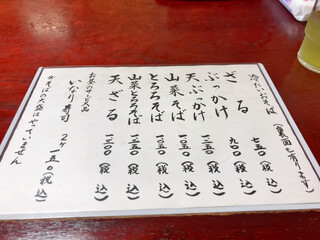 冷たいおそば（裏面も有ります）
ざる 七五〇（税込）
ぶっかけ 九〇〇（税込）
天ぶっかけ 一三五〇（税込）
山菜そば 一一五〇（税込）
とろろそば 一一五〇（税込）
山菜とろろそば 一三〇〇（税込）
天ざる 一三〇〇（税込）
お昼のサービス品
いなり寿司 2ヶ 一五〇（税込）
☆そばの大盛はやっていません